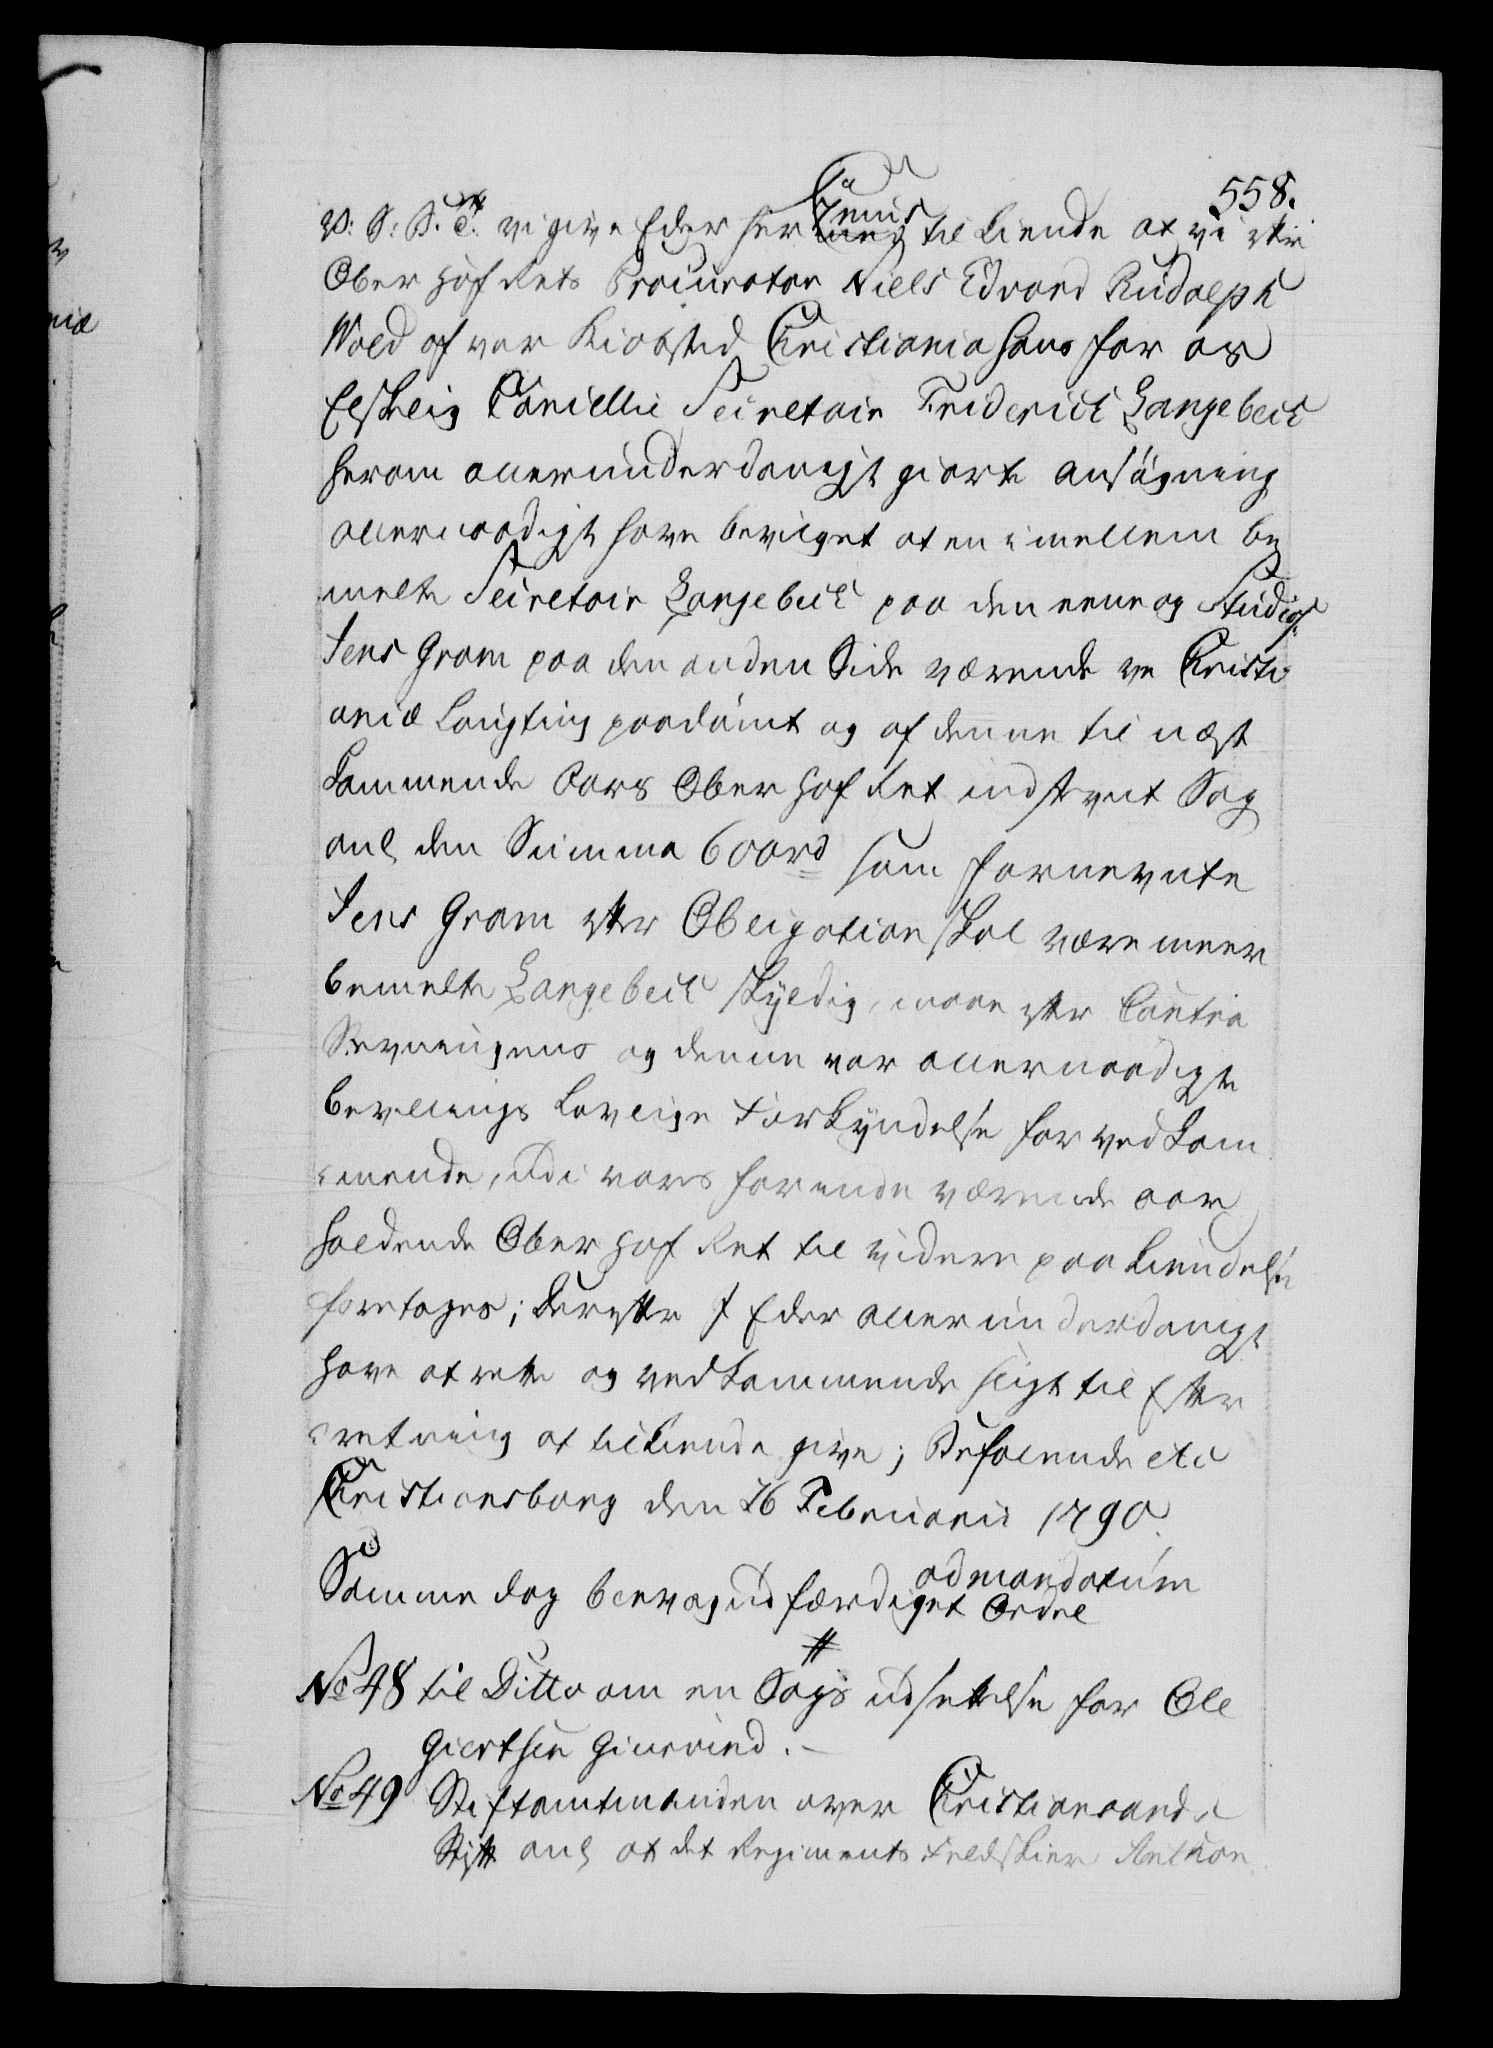 558.
V: G: G. T. vi give Eder her med til Kiende at vi efter
Ober Hof Rets Procurator Niels Edvard Rudolph
Wold af vor Kiøbsted Christiania hans for os
Elskelig Cancellie Secretair Friderich Langebech
herom allerunderdanigst giorte Ansøgning
allernaadigst have bevilget at en imellem be
melte Secretair Langebech paa den eene og Studios:
Jens Gram paa den anden Side værende ve Christi
aniæ Laugting paadømt og af denne til næst
kommende Aars Ober Hof Ret indstevnt Sag
anl. den Summa 600 rd som fornevnte
Jens Gram efter Obligation skal være meer
bemelte Langebech skyldig, maae efter Contra
Stevningens og denne vor allernaadigste
Bevillings lovlige Forkyndelse for vedkom
mende, udi vores forinden værende aar
holdende Ober Hof Ret til videre paakiendelse
foretages; Derefter I Eder allerunderdanigst
have at rette og vedkommende sligt til Efter
retning at tilkiende give; Befalende etc
Christiansborg den 26 Februarii 1790.
ad mandatum
Samme dag blev og udfærdiget Ordre
No 48 til Ditto om en Sags udsettelse for Ole
Giertsen
No 49 Stiftamtmanden over Christiansands
Stift anl at det Regiments Feldskier